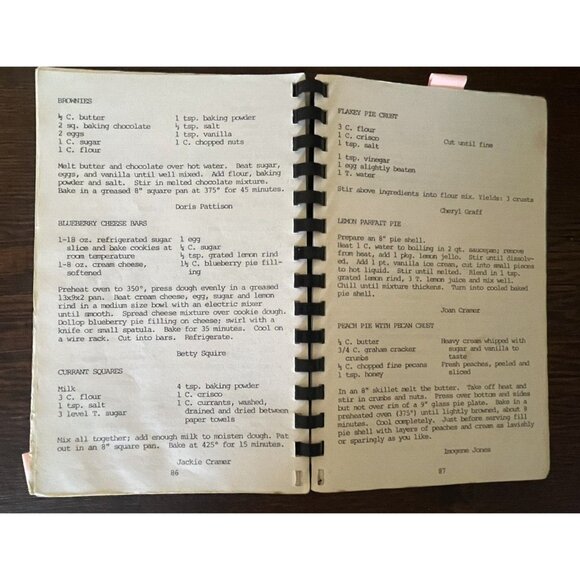 BROWNIES
½ C. butter
2 sq. baking chocolate
2 eggs
1 C. sugar
1 C. flour
1 tsp. baking powder
½ tsp. salt
1 tsp. vanilla
1 C. chopped nuts
Melt butter and chocolate over hot water. Beat sugar,
eggs, and vanilla until well mixed. Add flour, baking
powder and salt. Stir in melted chocolate mixture.
Bake in a greased 8" square pan at 375° for 45 minutes.
Doris Pattison
BLUEBERRY CHEESE BARS
1-18 oz. refrigerated sugar
slice and bake cookies at
room temperature
1-8 oz. cream cheese,
softened
1 egg
C. sugar
½ tsp. grated lemon rind
1½ C. blueberry pie fill-
ing
Preheat oven to 350°, press dough evenly in a greased
13x9x2 pan. Beat cream cheese, egg, sugar and lemon
rind in a medium size bowl with an electric mixer
until smooth. Spread cheese mixture over cookie dough.
Dollop blueberry pie filling on cheese; swirl with a
knife or small spatula. Bake for 35 minutes. Cool on
a wire rack. Cut into bars. Refrigerate.
Betty Squire
CURRANT SQUARES
Milk
3 C. flour
1 tsp. salt
3 level T. sugar
4 tsp. baking powder
1 C. crisco
1 C. currants, washed,
drained and dried between
paper towels
Mix all together; add enough milk to moisten dough. Pat
out in an 8" square pan. Bake at 425° for 15 minutes.
Jackie Cramer
86
FLAKEY PIE CRUST
3 C. flour
1 C. crisco
1 tsp. salt
Cut until fine
1 tsp. vinegar
1 egg slightly beaten
1 T. water
Stir above ingredients into flour mix. Yields: 3 crusts
Cheryl Graff
LEMON PARFAIT PIE
Prepare an 8" pie shell.
Heat 1 C. water to boiling in 2 qt. saucepan; remove
from heat, add 1 pkg. lemon jello. Stir until dissolv-
ed. Add 1 pt. vanilla ice cream, cut into small pieces
to hot liquid. Stir until melted. Blend in 1 tsp.
grated lemon rind, 3 T. lemon juice and mix well.
Chill until mixture thickens. Turn into cooled baked
pie shell.
Joan Cramer
PEACH PIE WITH PECAN CRUST
C. butter
3/4 C. graham cracker
crumbs
½ C. chopped fine pecans
1 tsp. honey
Heavy cream whipped with
sugar and vanilla to
taste
Fresh peaches, peeled and
sliced
In an 8" skillet melt the butter. Take off heat and
stir in crumbs and nuts. Press over bottom and sides
but not over rim of a 9" glass pie plate. Bake in a
preheated oven (375°) until lightly browned, about 8
minutes. Cool completely. Just before serving fill
pie shell with layers of peaches and cream as lavishly
or sparingly as you like.
Imogene Jones
87